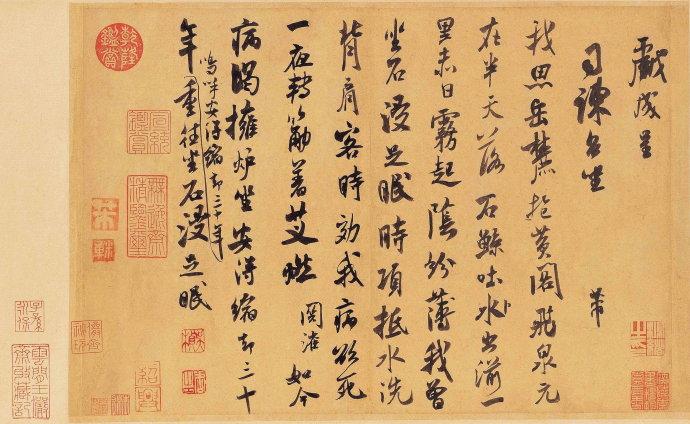 戲成呈
司諫台坐
芾
我思岳麓抱黃閣飛泉元
在半天落石鯨吐水出湔一
里赤日霧起陰紛薄我曾
坐石浸足眠時項抵水洗
背肩客時效我病欲死
一夜轉筋著艾燃 関灌 如今
病渴擁爐坐安得縮却三十
年重往坐石浸足眠
嗚呼安得縮却三十年
乾隆鑑賞